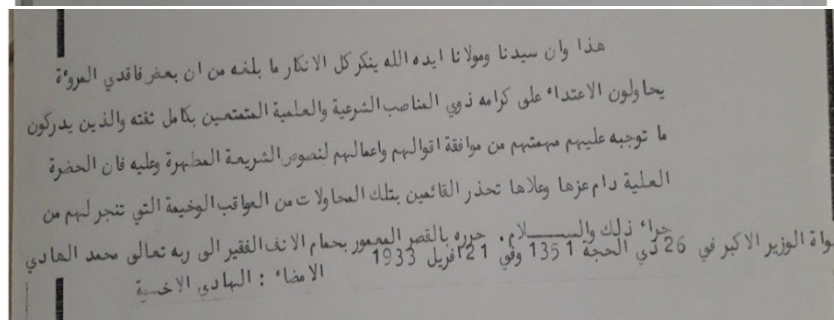 هذا وان سيدنا ومولانا ايده الله ينكر كل الانكار ما بلغه من ان بعض فاقدي المروءة
يحاولون الاعتداء على كرامه ذوي المناصب الشرعية والعلمية المتمتعين بكامل ثقته والذين يدركون
ما توجبه عليهم مهمتهم من موافقة اقوالهم واعمالهم لنصوص الشريعة المطهرة وعليه فان الحضرة
العلية دام عزها وعلاها تحذر القائمين بتلك المحاولات من العواقب الوخيمة التي تنجر لهم من
جراء ذلك والســـلام. حرره بالقصر المعمور بحمام الانف الفقير الى ربه تعالى محمد الهادي
الوزير الاكبر في 26 ذي الحجة 1351 وفي 21 افريل 1933
الامضاء : الهادي الاخـــوة